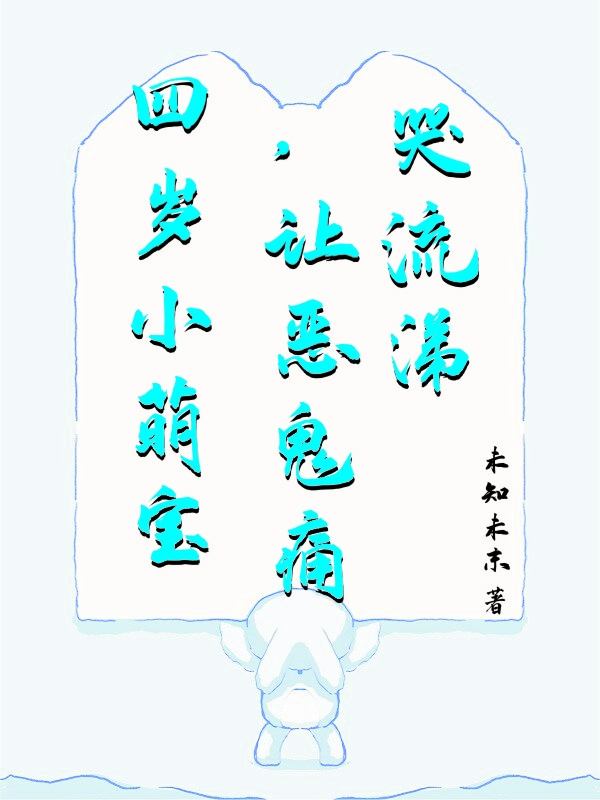 四岁小萌宝
，让恶鬼痛
哭流涕
未知未末著